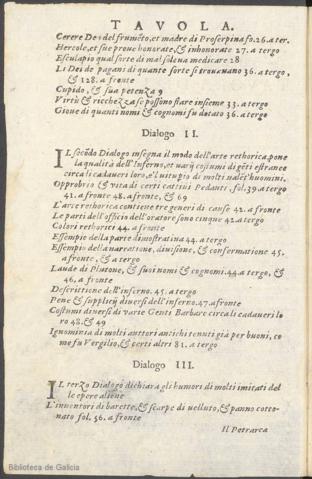 TAVOLA.
Cerere Dea del frumẽto, et madre di Proserpina fo. 26. a ter.
Hercole, et sue proue honorate, & inhonorate 27. a tergo
Esculapio qual sorte di mal solea medicare 28
Li Dei de pagani di quante sorte si trouauano 36. a tergo,
& 128. a fronte
Cupido, & sua potenza 9
Virtù & ricchezza se possono stare insieme 33. a tergo
Gioue di quanti nomi & cognomi fu dotato 36. a tergo
Dialogo II.
IL secõdo Dialogo insegna il modo dell'arte rethorica, pone
la qualità dell'Inferno, et uarij costumi di gẽti estranee
circa li cadaueri loro, e'l uitupio di molti ualẽt'huomini.
Opprobrio & uita di certi cattiui Pedanti, fol. 39. a tergo
41. a fronte 48. a fronte, & 69
L'arte rethorica contiene tre generi di cause 42. a fronte
Le parti dell'officio dell'oratore sono cinque 42. a tergo
Colori rethorici 44. a fronte
Essempio della parte dimostratiua 44. a tergo
Essempio della narratione, diuisione, & confermatione 45.
a fronte, & a tergo
Laude di Plutone, & suoi nomi & cognomi. 44. a tergo, &
46. a fronte
Descrittione dell'inferno. 45. a tergo
Pene & supplicij diuersi dell'inferno. 47. a fronte
Costumi diuersi di varie Genti Barbare circa li cadaueri lo
ro 48. & 49
Ignominia di molti auttori antichi tenuti già per buoni, co
me fu Vergilio, & certi altri 81. a tergo
Dialogo III.
IL terzo Dialogo dichiara gli humori di molti imitati del
le opere aliene
L'inuentori di barette, & scarpe di uelluto, & panno cotto-
nato fol. 56. a fronte
Il Petrarca
Biblioteca de Galicia